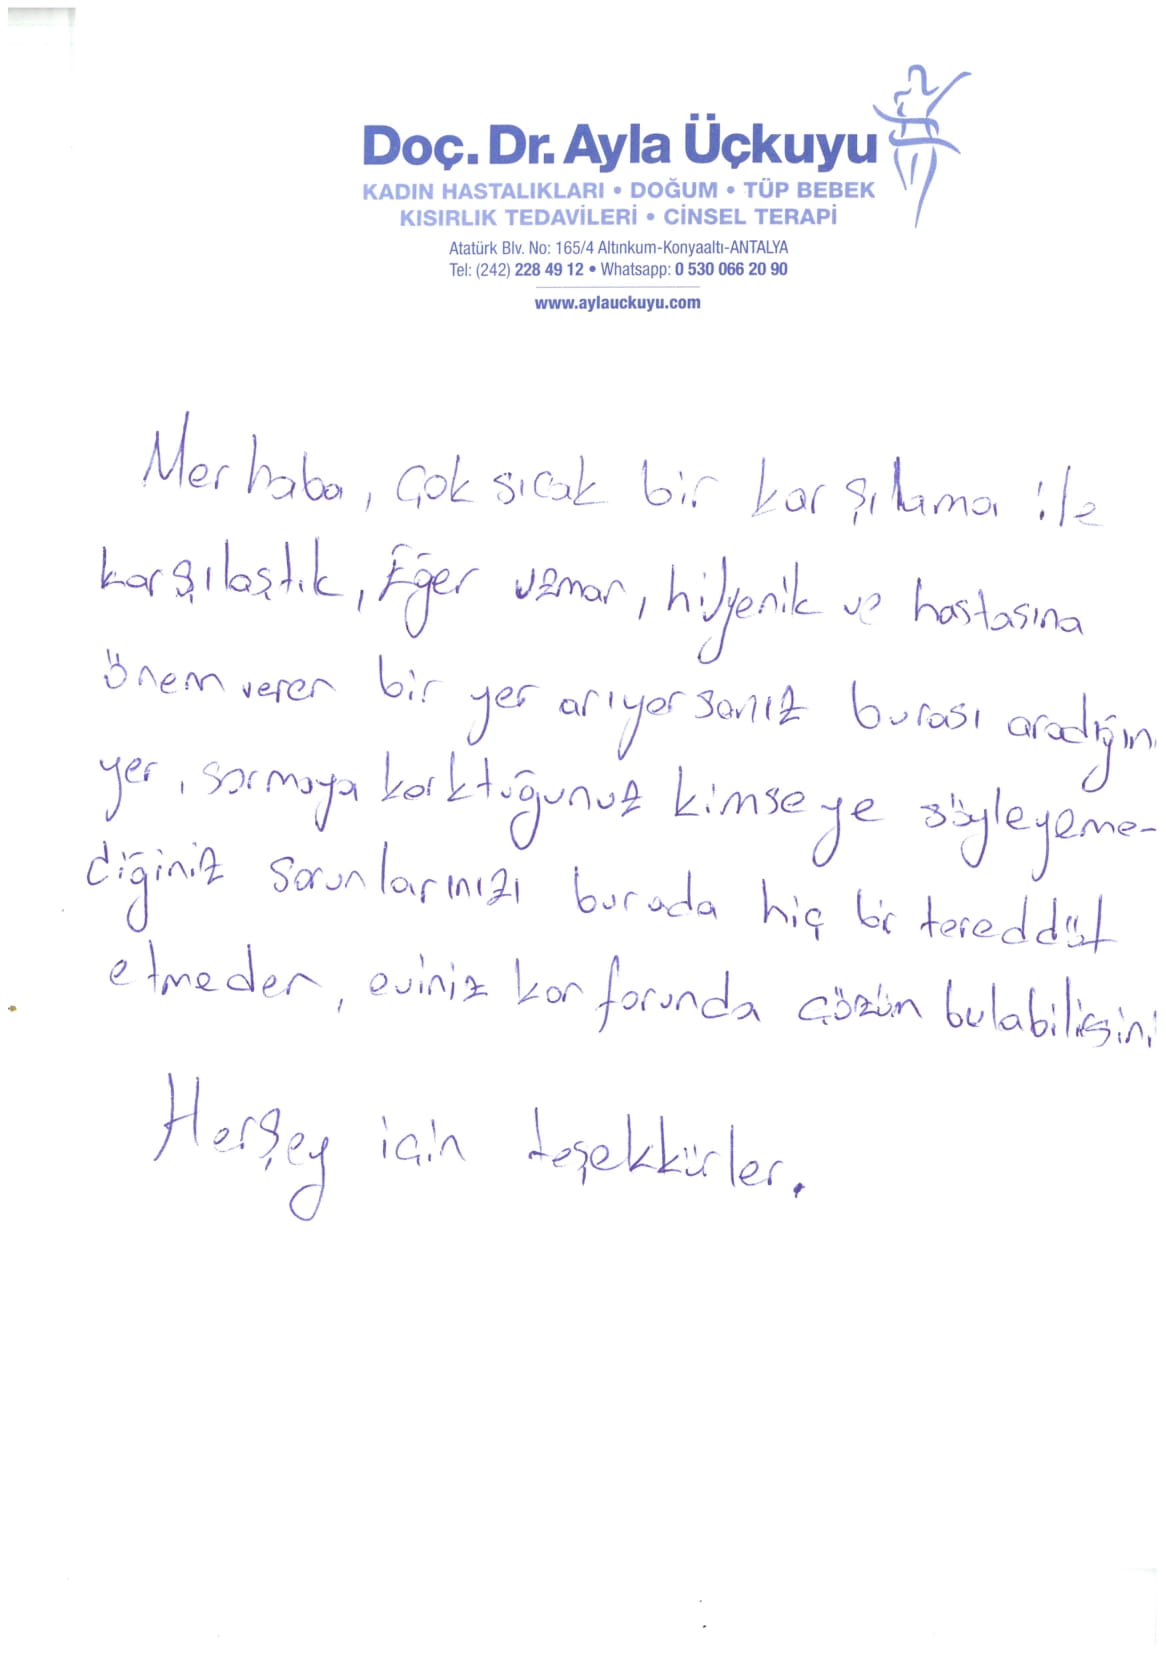 Doç. Dr. Ayla Üçkuyu
KADIN HASTALIKLARI • DOĞUM • TÜP BEBEK
KISIRLIK TEDAVİLERİ • CİNSEL TERAPİ
Atatürk Blv. No: 165/4 Altınkum-Konyaaltı-ANTALYA
Tel: (242) 228 49 12 • Whatsapp: 0 530 066 20 90
www.aylauckuyu.com
Merhaba, çok sıcak bir karşılama ile
karşılaştık, Eğer uzman, hijyenik ve hastasına
önem veren bir yer arıyorsanız burası aradığın
yer, sormaya korktuğunuz kimseye söyleyeme-
diğiniz sorunlarınızı burada hiç bir tereddüt
etmeden, eviniz konforunda çözüm bulabilirsini
Herşey için teşekkürler.